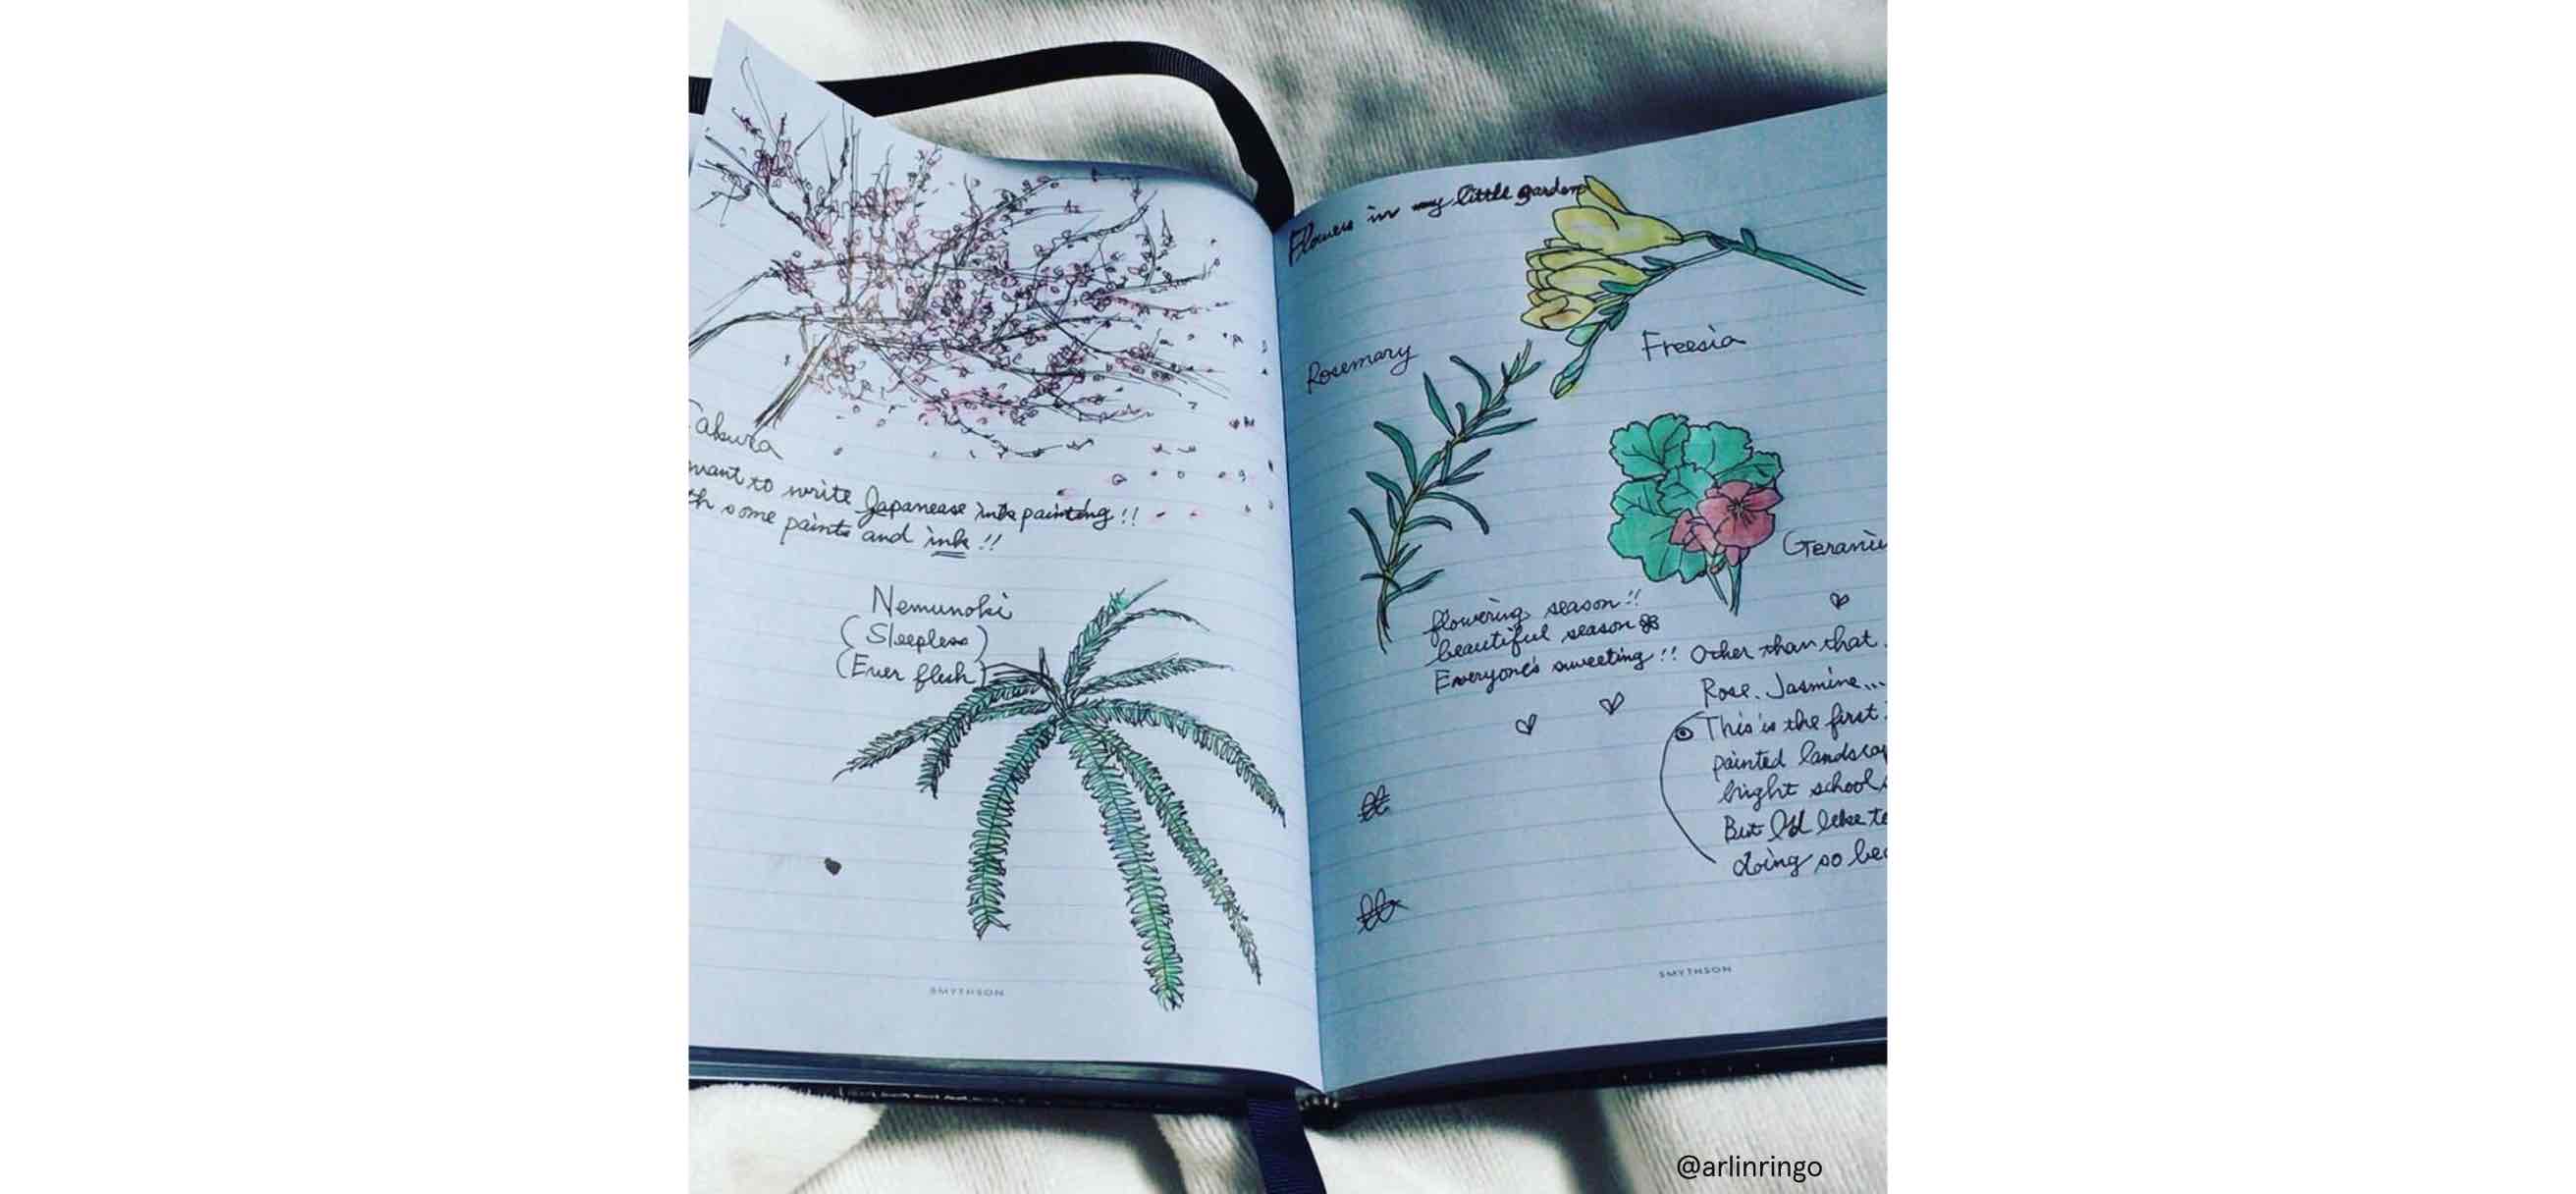 Sakura
want to write Japanease inks painting!!
th some paints and ink!!
Nemunoki
(Sleepless)
(Ever flesh)
SMYTHSON
Flowers in my little garden
Freesia
Rosemary
Geraniu
flowering season!!
beautiful season
Everyone's sweeting!! Other than that.
Rose. Jasmine...
This is the first
painted landscap
hight school
But I'd like to
doing so bec
SMYTHSON
@arlinringo